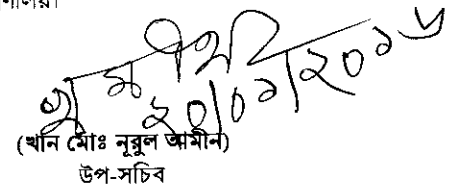 ২০/০১/২০১৬
(খান মোঃ নূরুল আমীন)
উপ-সচিব